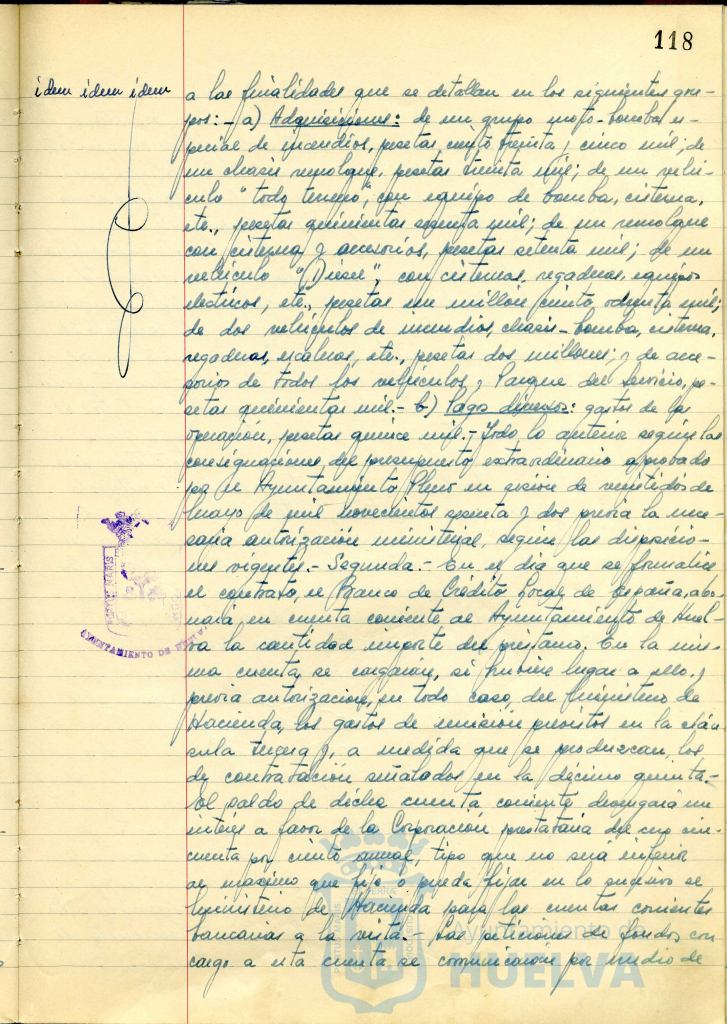 118
idem idem idem
a las finalidades que se detallan en los siguientes gru-
pos: - a) Adquisiciones: de un grupo moto-bomba es-
pecial de incendios, pesetas ciento treinta y cinco mil; de
un chasis remolque, pesetas treinta mil; de un vehí-
culo "todo terreno", con equipo de bomba, cisterna,
etc., pesetas quinientas sesenta mil; de un remolque
con cisterna y accesorios, pesetas setenta mil; de un
vehículo "Diesel", con cisternas, regaderas, equipos
electricos, etc., pesetas un millón ciento ochenta mil;
de dos vehículos de incendios, chasis-bomba, cisterna,
regaderas, escaleras, etc., pesetas dos millones; y de acce-
sorios de todos los vehículos y Parque del Servicio, pe-
setas quinientas mil.- b) Pagos diversos: gastos de la
operación, pesetas quince mil.- Todo lo anterior según las
consignaciones del presupuesto extraordinario aprobado
por el Ayuntamiento Pleno en sesión de veintidos de
mayo de mil novecientos sesenta y dos previa la nece-
saria autorización ministerial, según las disposicio-
nes vigentes.- Segunda.- En el dia que se formalice
el contrato, el Banco de Crédito Local de España, abo-
nará en cuenta corriente al Ayuntamiento de Huel-
va la cantidad importe del prestamo. En la mis-
ma cuenta se cargarán, si hubiere lugar a ello, y
previa autorización, en todo caso, del Ministerio de
Hacienda, los gastos de emisión previstos en la cláu-
sula tercera y, a medida que se produzcan, los
de contratación señalados en la décimo quinta.-
El saldo de dicha cuenta corriente devengará un
interés a favor de la Corporación prestataria del cero cin-
cuenta por ciento anual, tipo que no será inferior
al maximo que fijó o pueda fijar en lo sucesivo el
Ministerio de Hacienda para las cuentas corrientes
bancarias a la vista.- Las peticiones de fondos con
cargo a esta cuenta se comunicarán por medio de
AYUNTAMIENTO DE
Ayuntamiento de
HUELVA